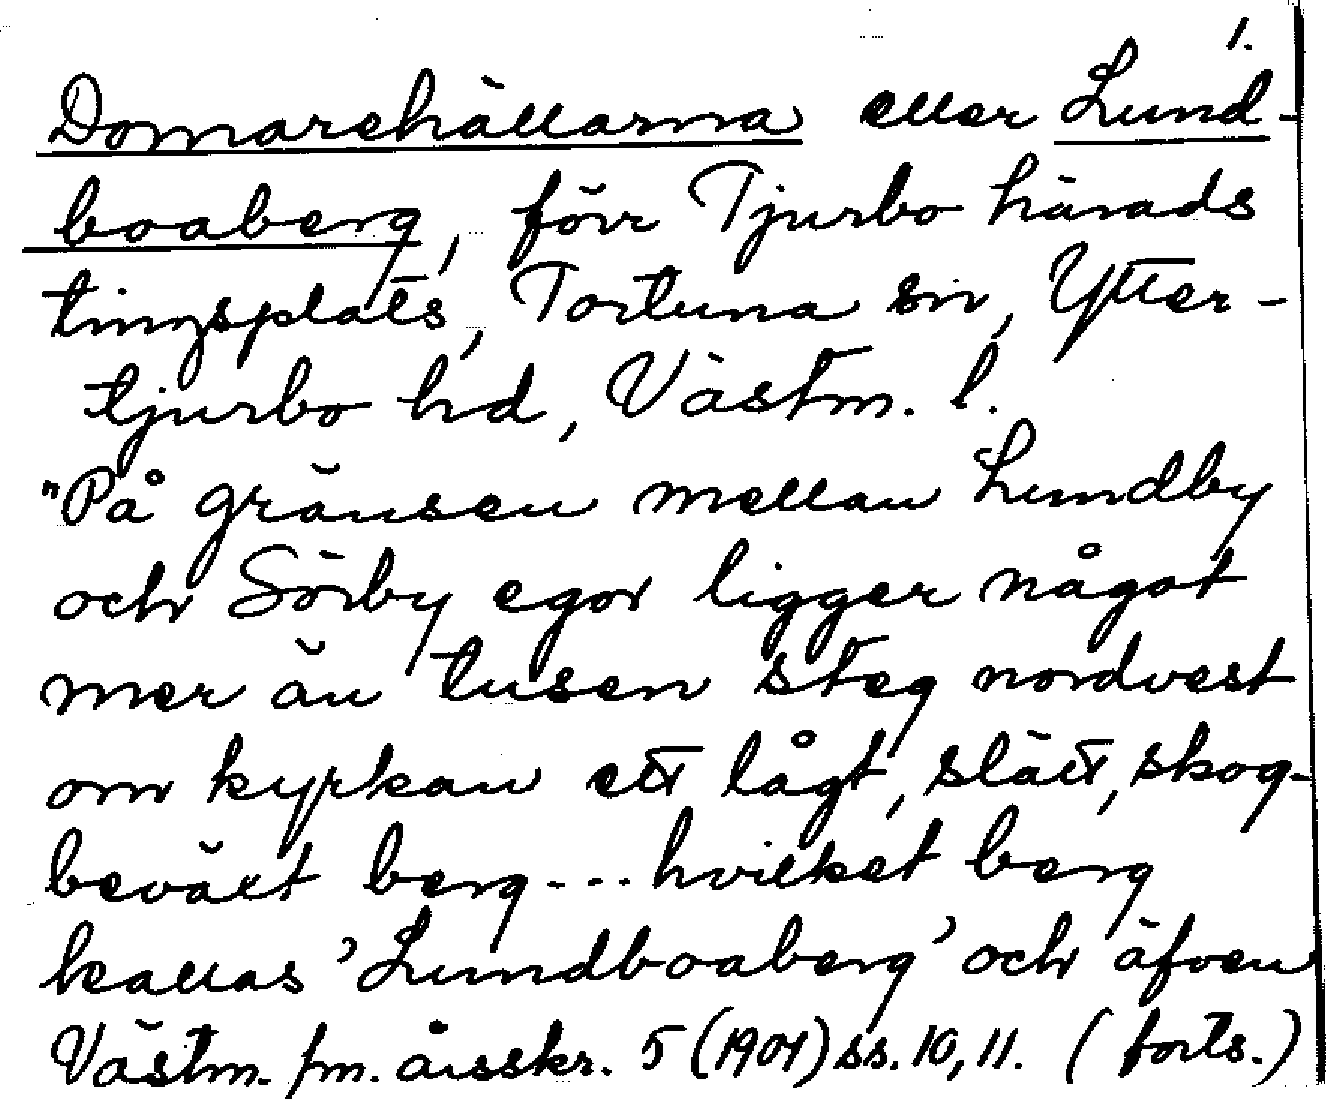 1.
Domarehällarna eller Lund-
boaberg, förr Tjurbo härads
tingsplats, Tortuna sn, Ytter-
tjurbo hd, Västm. l.
"På gränsen mellan Lundby
och Sörby egor ligger något
mer än tusen steg nordvest
om kyrkan ett lågt, slätt, skog-
beväxt berg --- hvilket berg
kallas 'Lundboaberg' och äfven
Västm. fm. årsskr. 5 (1901) ss. 10, 11. (forts.)